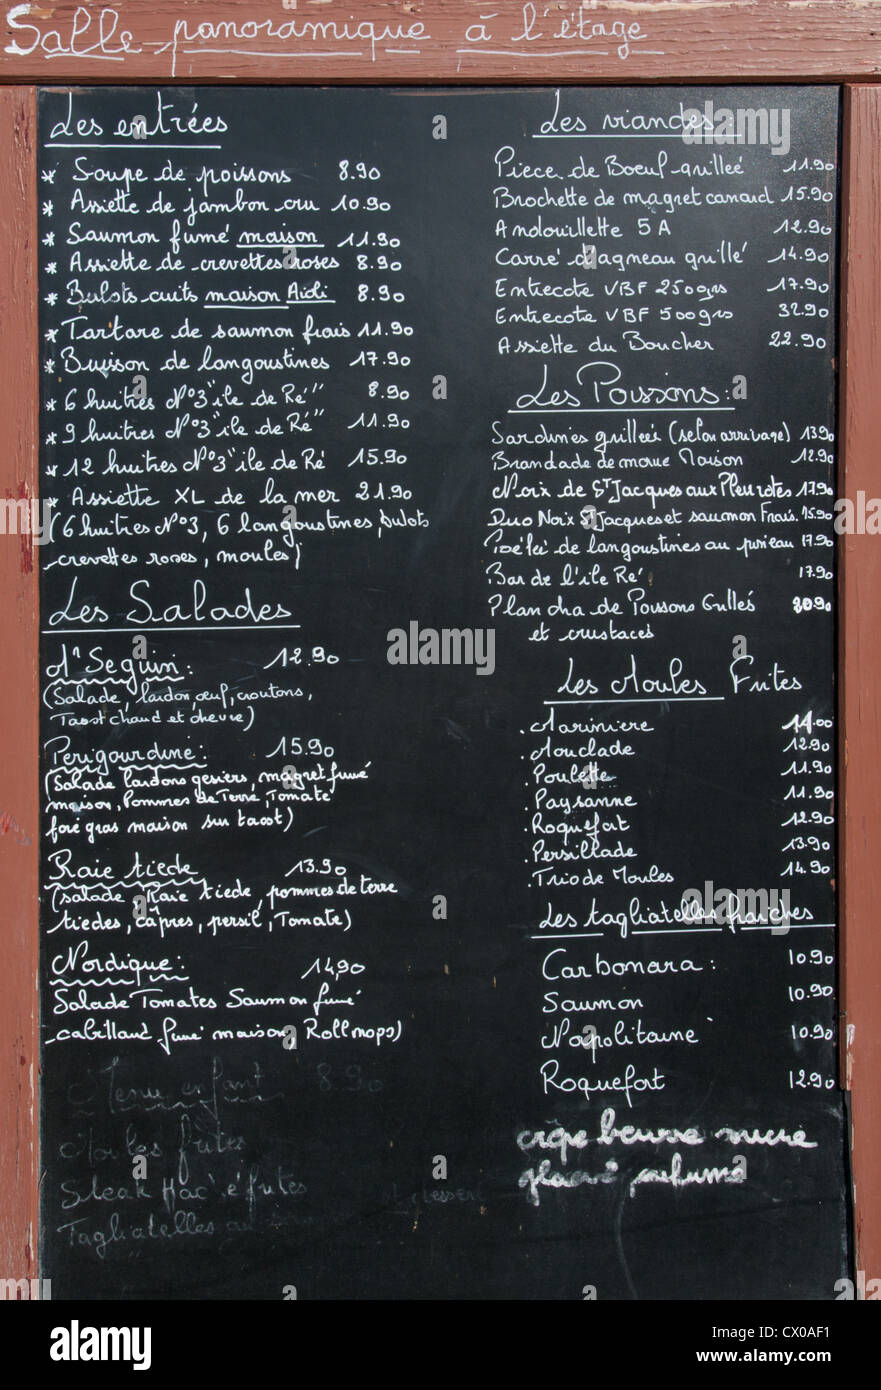 Salle panoramique à l'étage
Les entrées
* Soupe de poissons 8.90
* Assiette de jambon cru 10.90
* Saumon fumé maison 11.90
* Assiette de crevettes roses 8.90
* Bulots cuits maison Aioli 8.90
* Tartare de saumon frais 11.90
* Buisson de langoustines 17.90
* 6 huitres N°3 "ile de Ré" 8.90
* 9 huitres N°3 "ile de Ré" 11.90
* 12 huitres N°3 "ile de Ré 15.90
* Assiette XL de la mer 21.90
(6 huitres N°3, 6 langoustines, bulots
crevettes roses, moules)
Les Salades
Mr Seguin: 12.90
(Salade, lardon, œuf, croutons,
Toast chaud et chevre)
Perigourdine: 15.90
(Salade lardons gesiers, magret fumé
maison, Pommes de Terre, Tomate
foie gras maison sur toast)
Raie tiede 13.90
(salade, Raie tiede, pommes de terre
tiedes, câpres, persil, Tomate)
Nordique: 14,90
Salade Tomates Saumon fumé
cabillaud fumé maison Rollmops)
Menu enfant 8.90
Moules frites
Steak Hac'é frites
Tagliatelles au
dessert
Les viandes:
Piece de Boeuf grilleé 11.90
Brochette de magret canard 15.90
Andouillette 5A 12.90
Carré d'agneau grillé 14.90
Entrecote VBF 250grs 17.90
Entrecote VBF 500grs 32.90
Assiette du Boucher 22.90
Les Poissons:
Sardines grilleés (selon arrivage) 13.90
Brandade de morue Maison 12.90
Noix de St Jacques aux Pleurotes 17.90
Duo Noix St Jacques et saumon Frais. 15.90
Poêleé de langoustines au pineau 17.90
Bar de l'ile Ré 17.90
Plancha de Poissons Grillés 20.90
et crustacés
Les Moules Frites
. Mariniere 11.00
. Mouclade 12.90
. Poulette 11.90
. Paysanne 11.90
. Roquefort 12.90
. Persillade 13.90
. Trio de Moules 14.90
Les tagliatelles fraiches
Carbonara: 10.90
Saumon 10.90
Napolitaine 10.90
Roquefort 12.90
crêpe beurre sucre
glace parfums
alamy
Image ID: CX0AF1
www.alamy.com